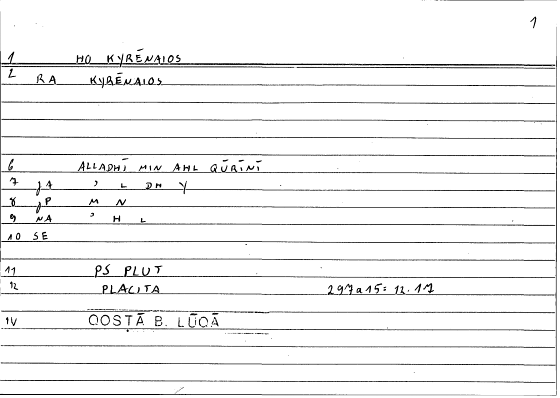 1
1 HO KYRĒNAIOS
2 RA KYRĒNAIOS
6 ALLADHĪ MIN AHL QŪRĪNĪ
7 JA ʾ L DH Y
8 JP M N
9 NA ʾ H L
10 SE
11 PS PLUT
12 PLACITA 297a15: 12.17
IV QOSṬĀ B. LŪQĀ